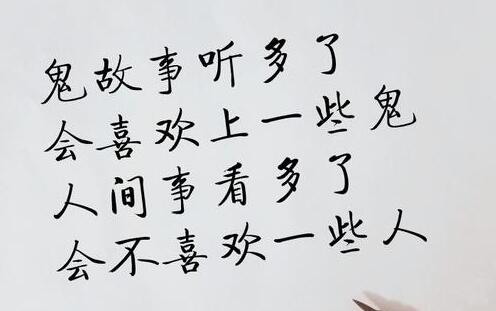 鬼故事听多了
会喜欢上一些鬼
人间事看多了
会不喜欢一些人